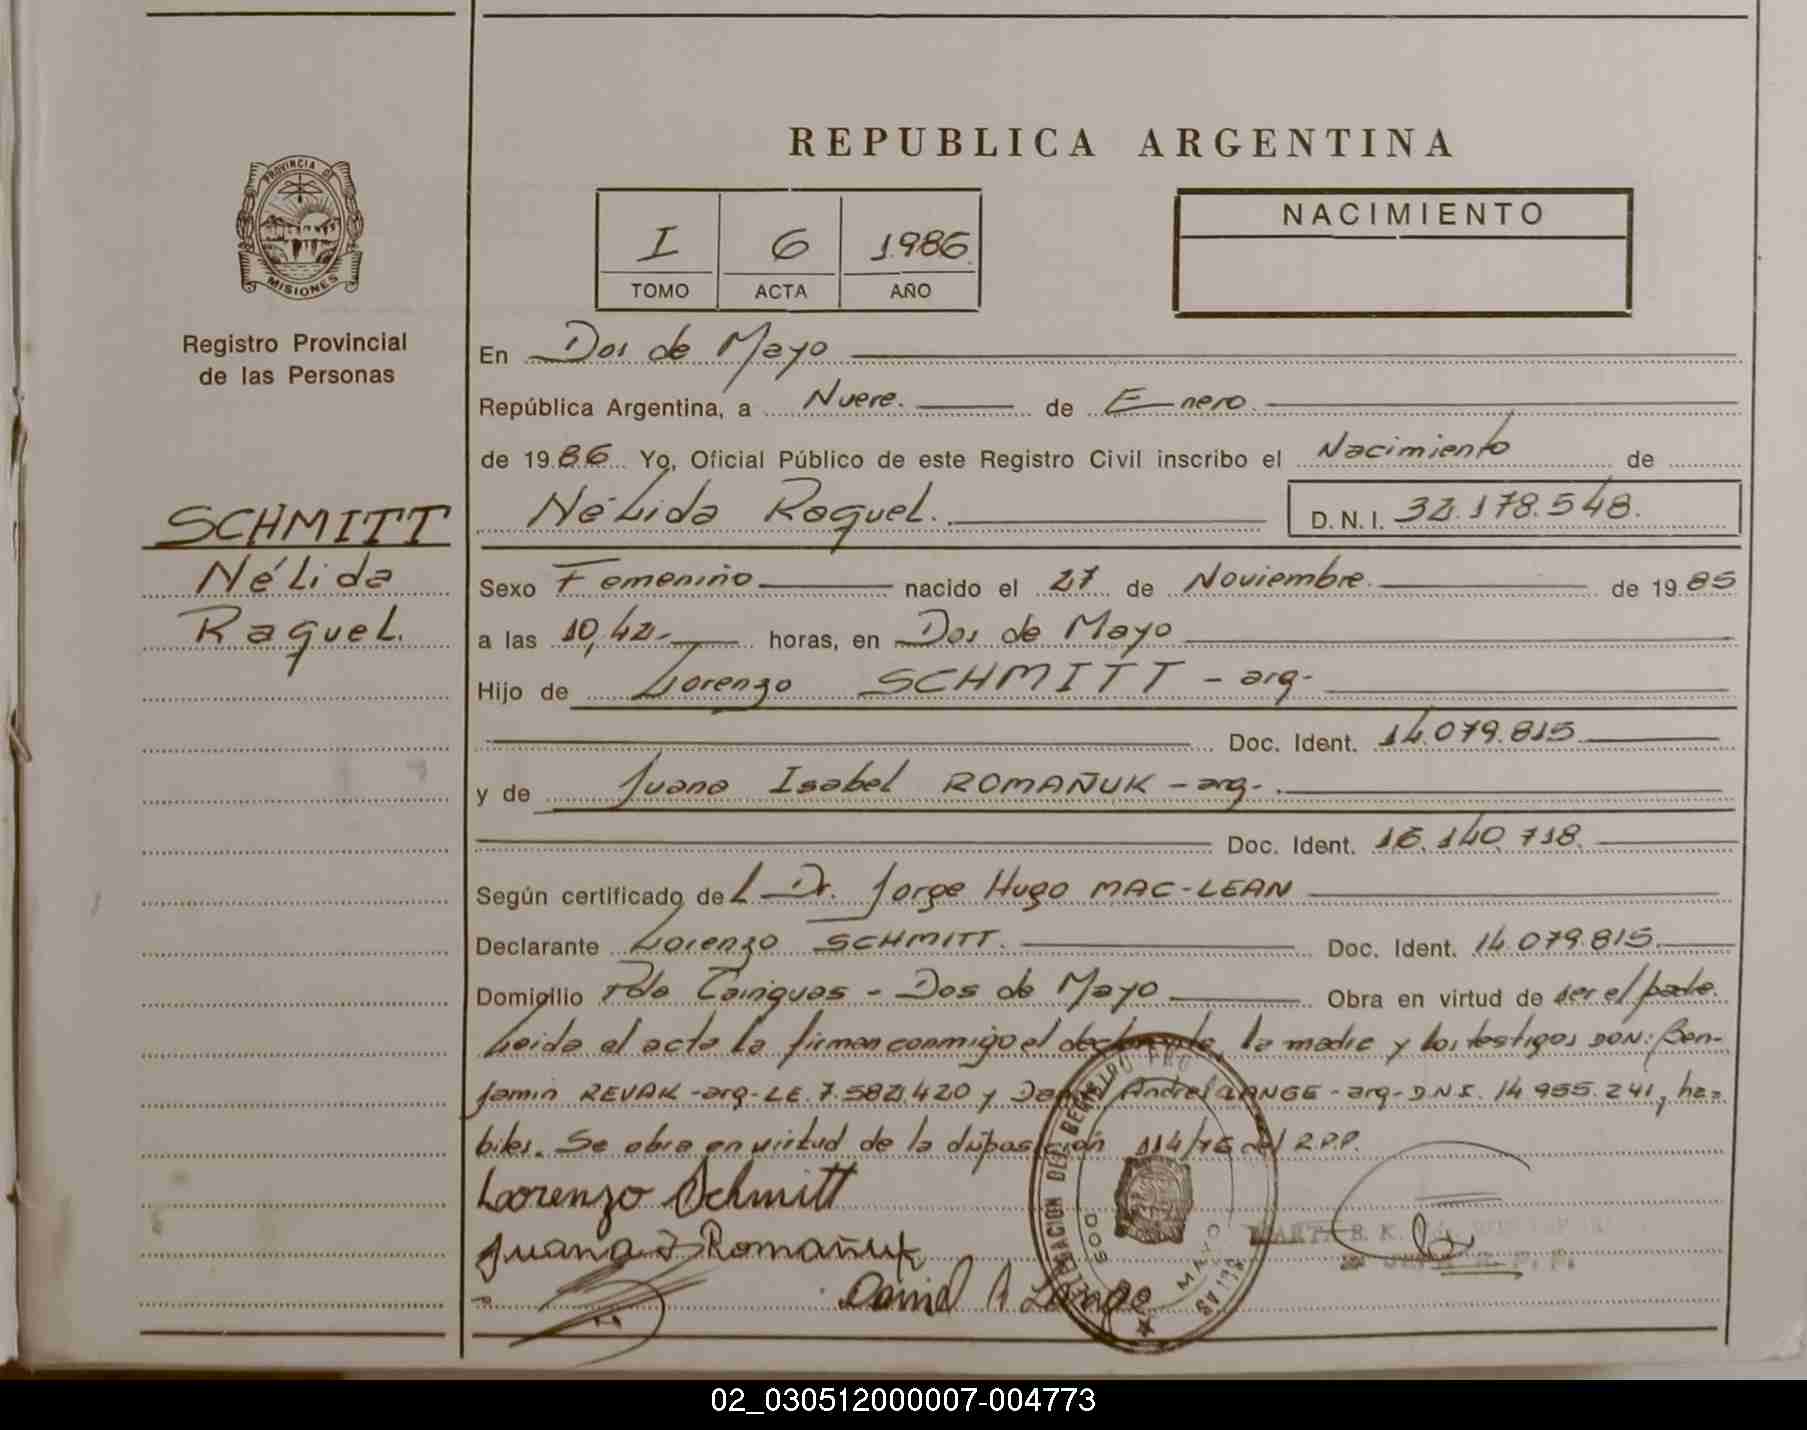 REPUBLICA ARGENTINA
PROVINCIA DE
MISIONES
Registro Provincial
de las Personas
SCHMITT
Nélida
Raquel.
I 6 1986
TOMO ACTA AÑO
NACIMIENTO
En Dos de Mayo
República Argentina, a Nueve. de Enero
de 1986 Yo, Oficial Público de este Registro Civil inscribo el Nacimiento de
Nélida Raquel. D.N.I. 32.178.548.
Sexo Femenino nacido el 27 de Noviembre de 1985
a las 10,42.- horas, en Dos de Mayo
Hijo de Lorenzo SCHMITT - arg-
Doc. Ident. 14.079.815.
y de Juana Isabel ROMAÑUK - arg-.
Doc. Ident. 16.140.718.
Según certificado del Dr. Jorge Hugo MAC-LEAN
Declarante Lorenzo SCHMITT. Doc. Ident. 14.079.815.
Domicilio Pdo Cainguas - Dos de Mayo Obra en virtud de ser el padre.
Leida el acta la firman conmigo el declarante, la madre y los testigos DON: Ben-
jamin REVAK -arg- LE. 7.582.420 y Daniel Andres LANGE - arg- D.N.I. 14.955.241, ha=
biles. Se obra en virtud de la disposición 114/76 del R.P.P.
Lorenzo Schmitt
Juana I Romañuk
Daniel A Lange
DELEGACION DEL REGISTRO
DOS MAYO
MARTA B. K.
JEFE R. P. P.
02_030512000007-004773